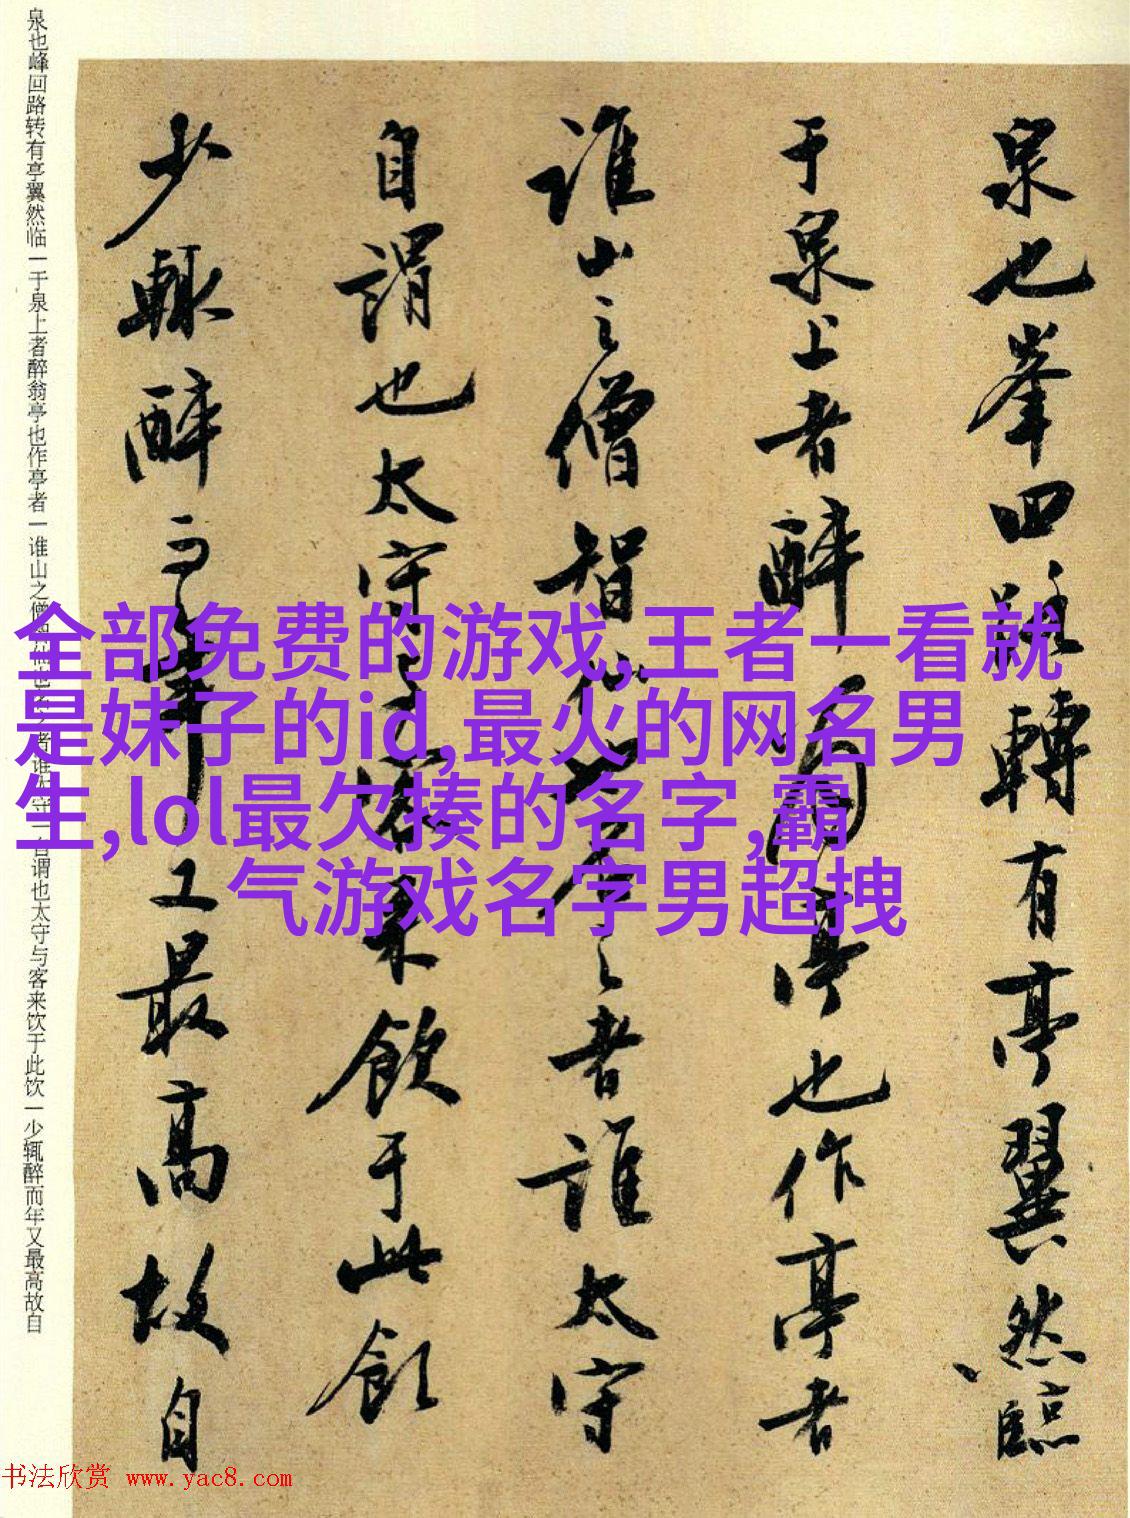 泉也峯回路轉有亭翼然臨
于泉上者醉翁亭也作亭者
誰山之僧智仙也名之者誰太守
自謂也太守與客来飲于此飲
少輒醉而年又最高故自
泉也峰回路转有亭翼然临一于泉上者醉翁亭也作亭者一谁山之僧智仙也名之者谁太守一自谓也太守与客来饮于此饮一少辄醉而年又最高故自
全部免费的游戏,王者一看就
是妹子的id,最火的网名男
生,lol最欠揍的名字,霸
气游戏名字男超拽
书法欣赏 www.yac8.com